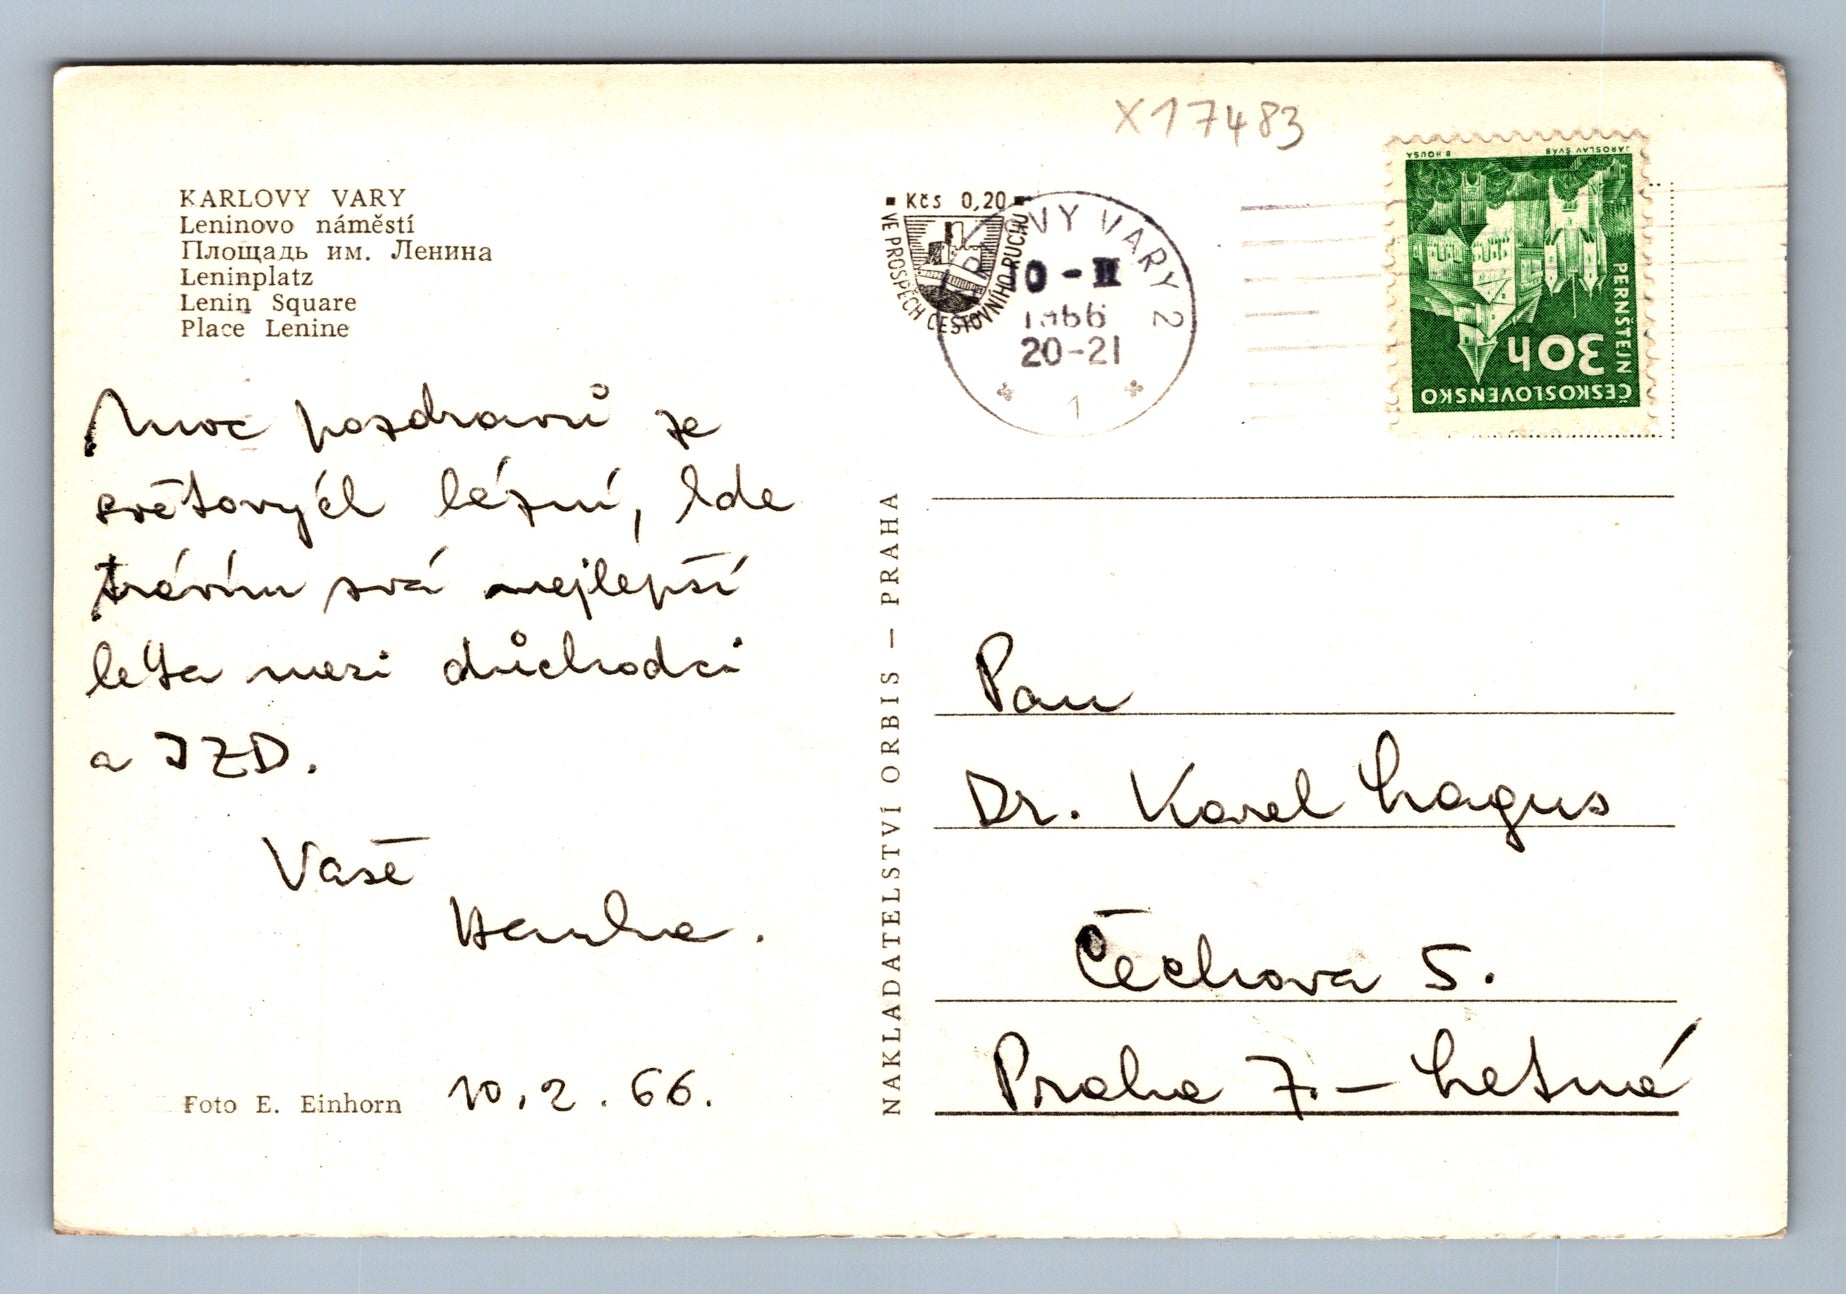 X17483
KARLOVY VARY
Leninovo náměstí
Площадь им. Ленина
Leninplatz
Lenin Square
Place Lenine
Kčs 0,20
VE PROSPĚCH CESTOVNÍHO RUCHU
KARLOVY VARY 2
0-II
1966
20-21
1
B HOUSA
JAROSLAV ŠVÁB
PERNŠTEJN
30h
ČESKOSLOVENSKO
Moc pozdravů ze
světových lázní, kde
trávím svá nejlepší
léta mezi důchodci
a JZD.
Vaše
Hanka.
Foto E. Einhorn
10.2.66.
NAKLADATELSTVÍ ORBIS – PRAHA
Pan
Dr. Karel Lagus
Čechova 5.
Praha 7. – Letná